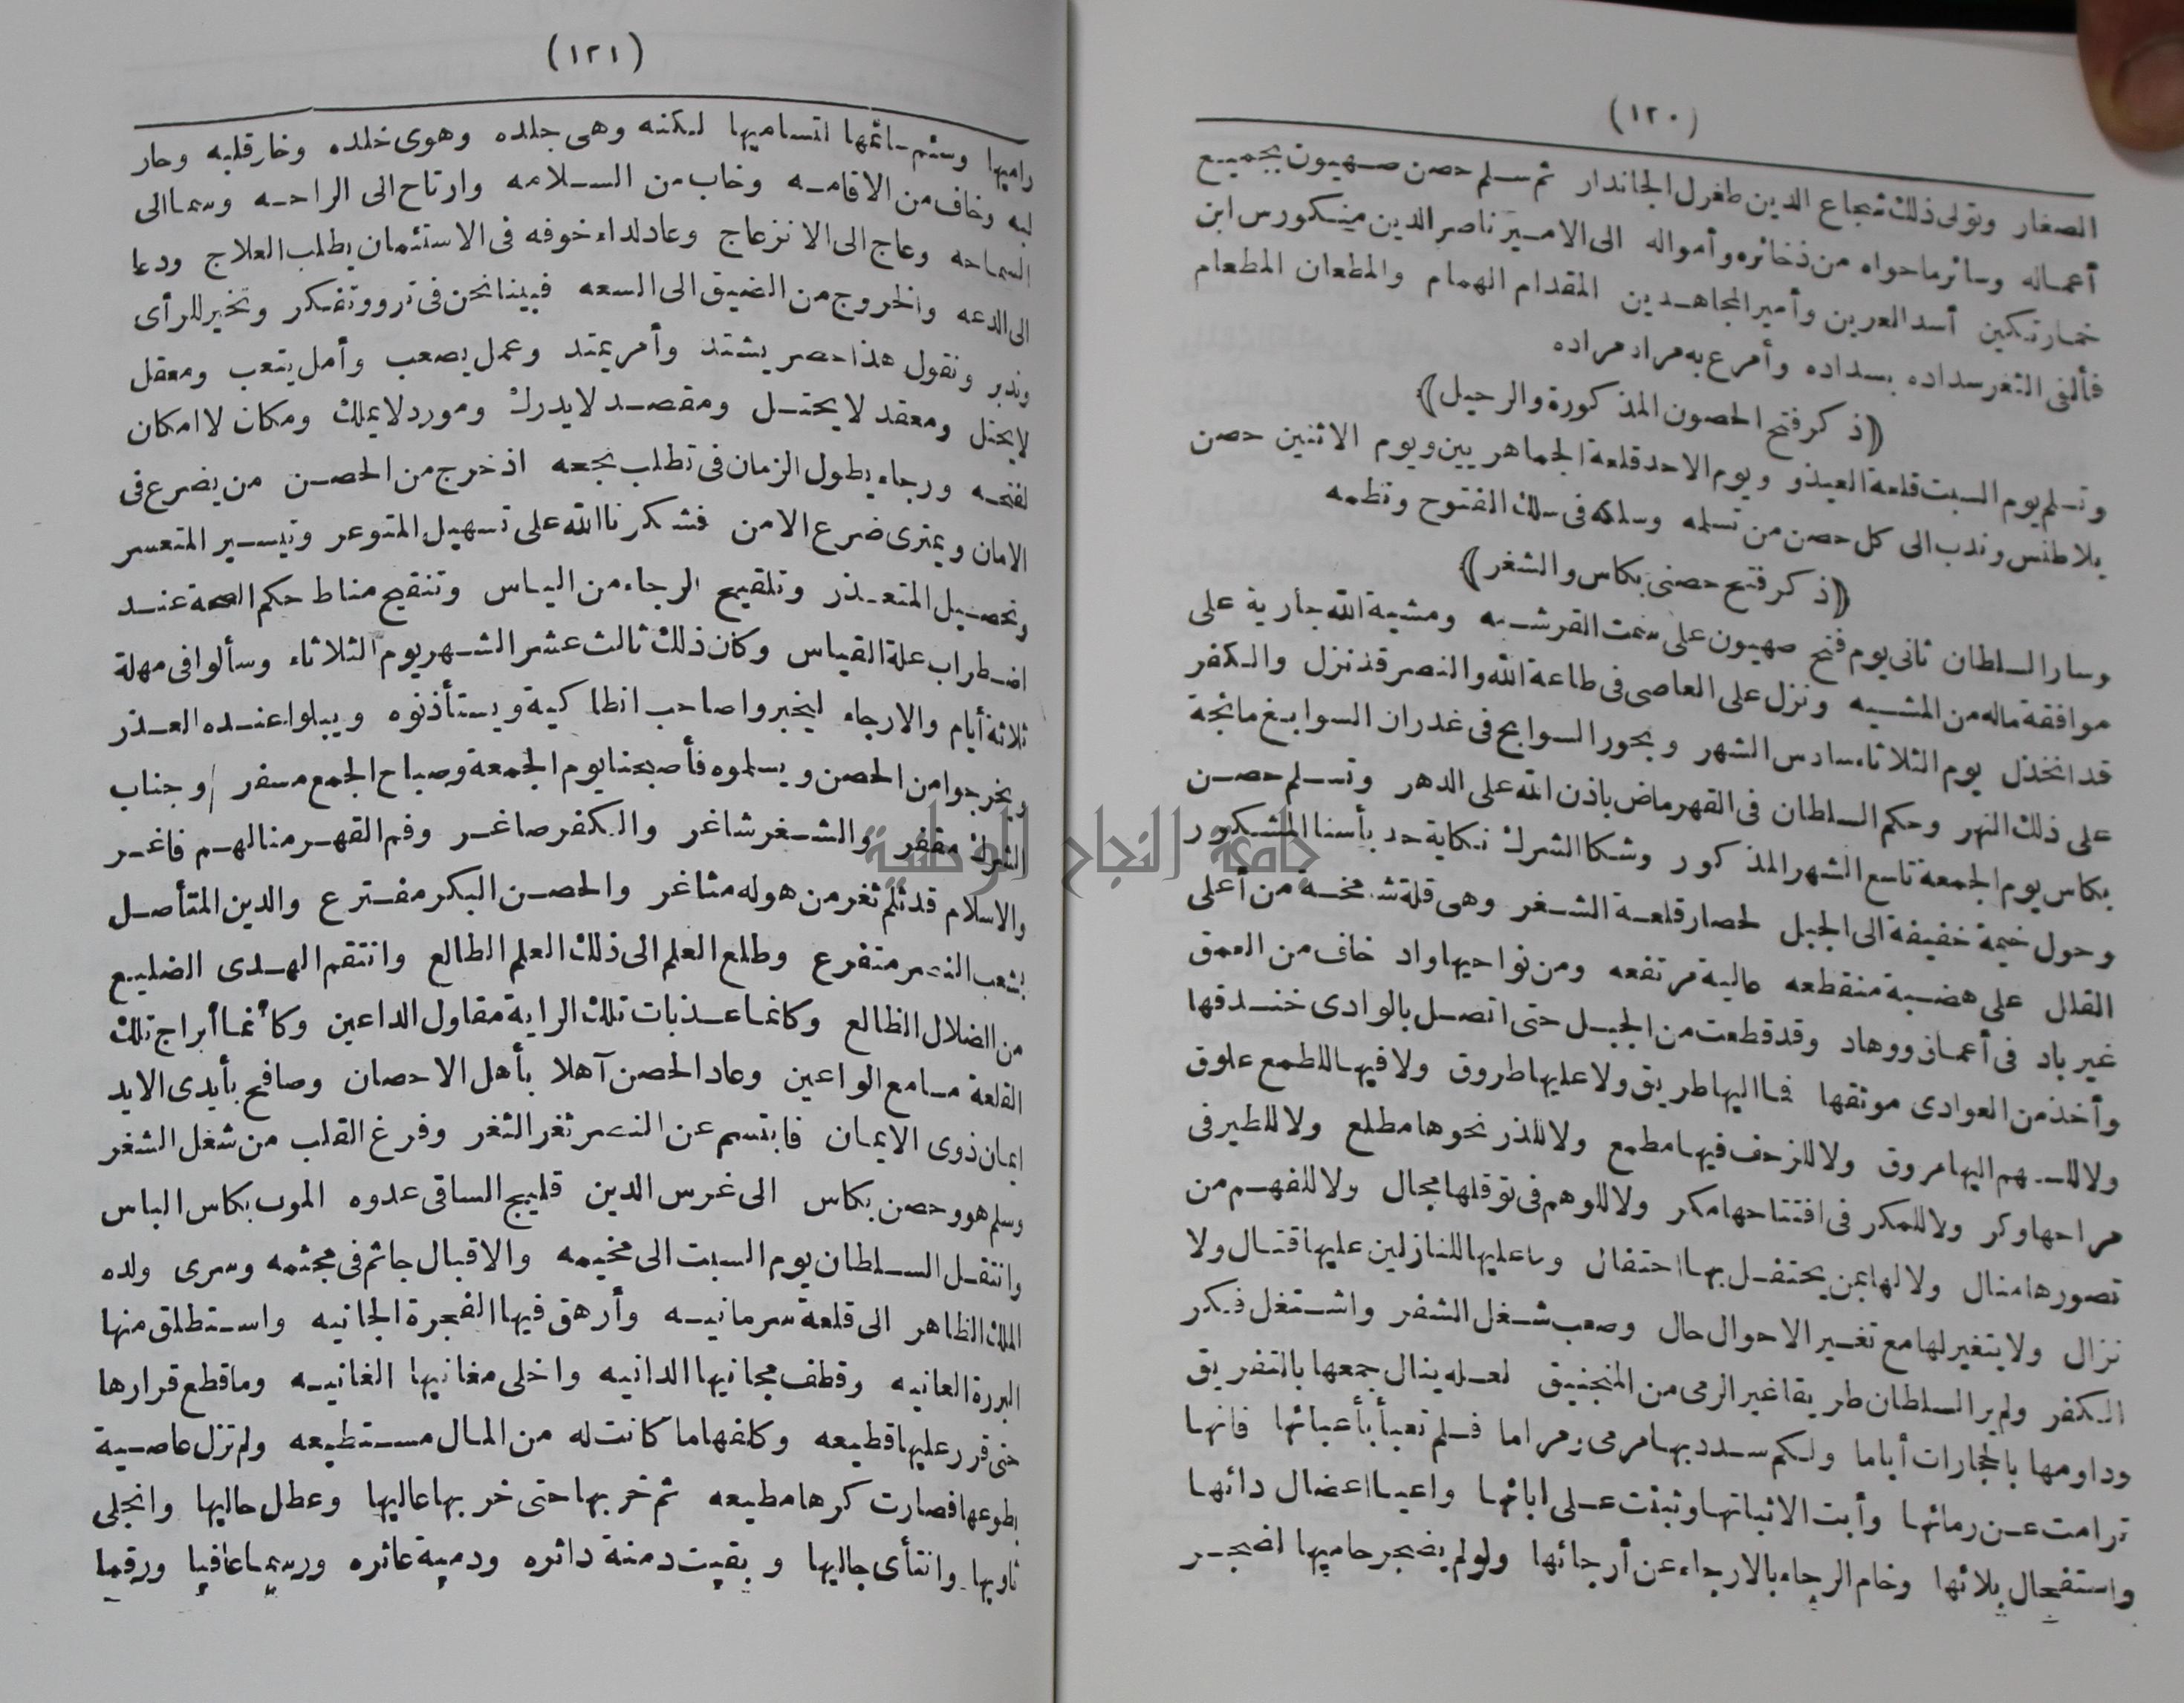 (١٢٠)
الصغار وتولى ذلك شجاع الدين طغرل الجاندار ثم سلم حصن صهيون بجميع
أعماله وسائر ما حواه من ذخائره وأمواله الى الامير ناصر الدين منكورس ابن
خمارتكين أسد العرين وأمير المجاهدين المقدام الهمام والمطعان المطعام
فألفى الثغر سداده بسداده وأمرع به مراد مراده
﴿ذكر فتح الحصون المذكورة والرحيل﴾
وتسلم يوم السبت قلعة العيذو ويوم الاحد قلعة الجماهريين ويوم الاثنين حصن
بلاطنس وندب الى كل حصن من تسلمه وسلكه فى سلك الفتوح ونظمه
﴿ذكر فتح حصنى بكاس والشغر﴾
وسار السلطان ثانى يوم فتح صهيون على سمت القرشيه ومشية الله جارية على
موافقة ماله من المشيه ونزل على العاصى فى طاعة الله والنصر قد نزل والكفر
قد انخذل يوم الثلاثاء سادس الشهر وبحور السوابح فى غدران السوابغ مائجة
على ذلك النهر وحكم السلطان فى القهر ماض باذن الله على الدهر وتسلم حصن
بكاس يوم الجمعة تاسع الشهر المذكور وشكا الشرك نكاية حد بأسنا المشكور
وحول خيمة خفيفة الى الجبل لحصار قلعة الشغر وهى قلة شامخة من أعلى
القلل على هضبة منقطعه عالية مرتفعه ومن نواحيها واد خاف من العمق
غير باد فى أعماق ووهاد وقد قطعت من الجبل حتى اتصل بالوادى خندقها
وأخذ من العوادى موثقها فما اليها طريق ولا عليها طروق ولا فيها للطمع علوق
ولا للسهم اليها مروق ولا للزحف فيها مطمع ولا للذر نحوها مطلع ولا للطير فى
مراحها وكر ولا للمكر فى افتتاحها مكر ولا للوهم فى توقلها مجال ولا للفهم من
تصورها منال ولا لها بمن يحتفل بها احتفال وما عليها للنازلين عليها قتال ولا
نزال ولا يتغير لها مع تغير الاحوال حال وصعب شغل الشغر واشتغل فكر
الكفر ولم ير السلطان طريقا غير الرمى من المنجنيق لعله ينال جمعها بالتفريق
وداومها بالحجارات أياما ولكم سدد بها مرمى ومراما فلم تعبأ بأعبائها فانها
ترامت عن رمائها وأبت الاثباتها وثبتت على ابائها واعيا اعضال دائها
واستفحال بلائها وخام الرجاء بالارجاء عن أرجائها ولو لم يضجر حاميها لضجر
(١٢١)
راميها وسئم سائمها لتساميها لكنه وهى جلده وهوى خلده وخار قلبه وحار
لبه وخاف من الاقامه وخاب من السلامه وارتاح الى الراحه وسما الى
السماحه وعاج الى الانزعاج وعاد لداء خوفه فى الاستئمان يطلب العلاج ودعا
الى الدعه والخروج من الضيق الى السعه فبينا نحن فى ترو وتفكر وتخير للرأى
وتدبر ونقول هذا حصر يشتد وأمر يمتد وعمل يصعب وأمل يتعب ومعقل
لا يحتل ومعقد لا يحتل ومقصد لا يدرك ومورد لا يملك ومكان لا امكان
لفتحه ورجاء يطول الزمان فى تطلب نجحه اذ خرج من الحصن من يضرع فى
الامان ويمترى ضرع الامن فشكرنا الله على تسهيل المتوعر وتيسير المتعسر
وتحصيل المتعذر وتلقيح الرجاء من الياس وتنقيح مناط حكم الصحة عند
اضطراب علة القياس وكان ذلك ثالث عشر الشهر يوم الثلاثاء وسألوا فى مهلة
ثلاثة أيام والارجاء ليخبروا صاحب انطاكية ويستأذنوه ويبلوا عنده العذر
ويخرجوا من الحصن ويسلموه فأصبحنا يوم الجمعة وصباح الجمع مسفر وجناب
الشرك مقفر والشغر شاغر والكفر صاغر وفم القهر منا لهم فاغر
والاسلام قد ثلم ثغر من هوله مثاغر والحصن البكر مفترع والدين المتأصل
بشعب النصر متفرع وطلع العلم الى ذلك العلم الطالع وانتقم الهدى الضليع
من الضلال الظالع وكانما عذبات تلك الراية مقاول الداعين وكأنما أبراج تلك
القلعة مسامع الواعين وعاد الحصن آهلا بأهل الاحصان وصافح بأيدى الايد
ايمان ذوى الايمان فابتسم عن النصر ثغر الثغر وفرغ القلب من شغل الشغر
وسلم هو وحصن بكاس الى غرس الدين قليج الساقى عدوه الموت بكاس الباس
وانتقل السلطان يوم السبت الى مخيمه والاقبال جاثم فى مجثمه وسرى ولده
الملك الظاهر الى قلعة سرمانيه وأرهق فيها الفجرة الجانيه واستطلق منها
البررة العانيه وقطف مجانيها الدانيه واخلى مغانيها الغانيه وما قطع قرارها
حتى قرر عليها قطيعه وكلفها ما كانت له من المال مستطيعه ولم تزل عاصية
بطوعها فصارت كرها مطيعه ثم خربها حتى خر بها عاليها وعطل حاليها وانجلى
ثاويها وانتأى جاليها وبقيت دمنة داثره ودمية عاثره ورسما عافيا ورقما
جامعة النجاح الوطنية